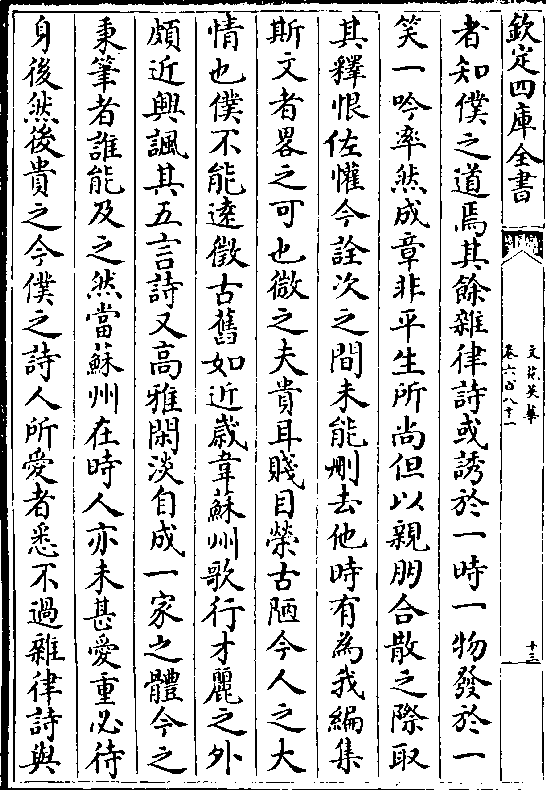 欽定四庫全書
文苑英華
卷六百八十一
十三
者知僕之道焉其餘雜律詩或誘於一時一物發於一
笑一吟率然成章非平生所尚但以親朋合散之際取
其釋恨佐懽今詮次之間未能刪去他時有為我編集
斯文者畧之可也微之夫貴耳賤目榮古陋今人之大
情也僕不能逺徵古舊如近歲韋蘇州歌行才麗之外
頗近興諷其五言詩又高雅閑淡自成一家之體今之
秉筆者誰能及之然當蘇州在時人亦未甚愛重必待
身後然後貴之今僕之詩人所愛者悉不過雜律詩與